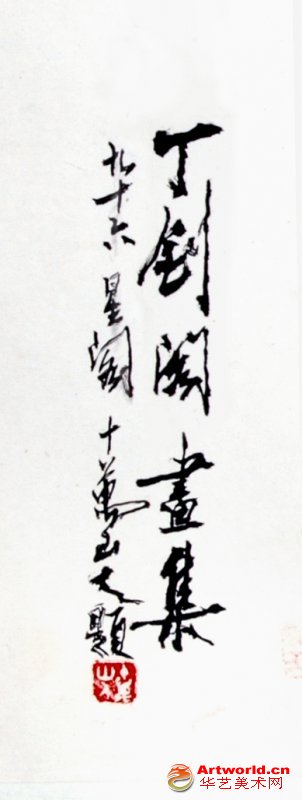 丁劍閣畫集
九十六星閣十萬山人題
Artworld.cn
华艺美术网